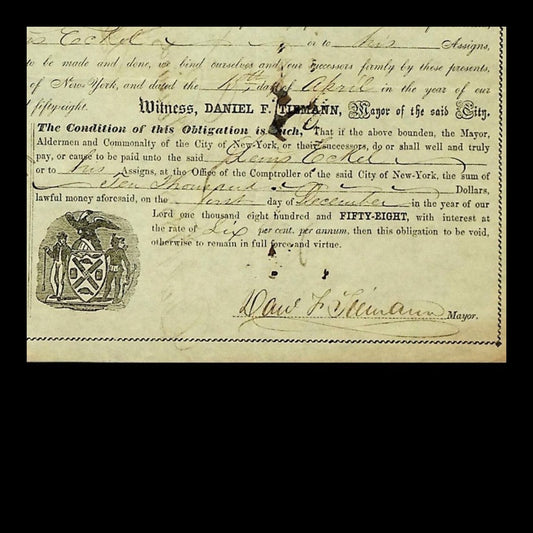 or to his Assigns,
to be made and done, we bind ourselves and our successors firmly by these presents,
of New York, and dated the day of April in the year of our
fifty-eight. Witness, DANIEL F. TIEMANN, Mayor of the said City.
The Condition of this Obligation is Such, That if the above bounden, the Mayor,
Aldermen and Commonalty of the City of New-York, or their successors, do or shall well and truly
pay, or cause to be paid unto the said
or to his Assigns, at the Office of the Comptroller of the said City of New-York, the sum of
Ten Thousand Dollars,
lawful money aforesaid, on the first day of December in the year of our
Lord one thousand eight hundred and FIFTY-EIGHT, with interest at
the rate of Six per cent. per annum, then this obligation to be void,
otherwise to remain in full force and virtue.
Danl F. Tiemann Mayor.